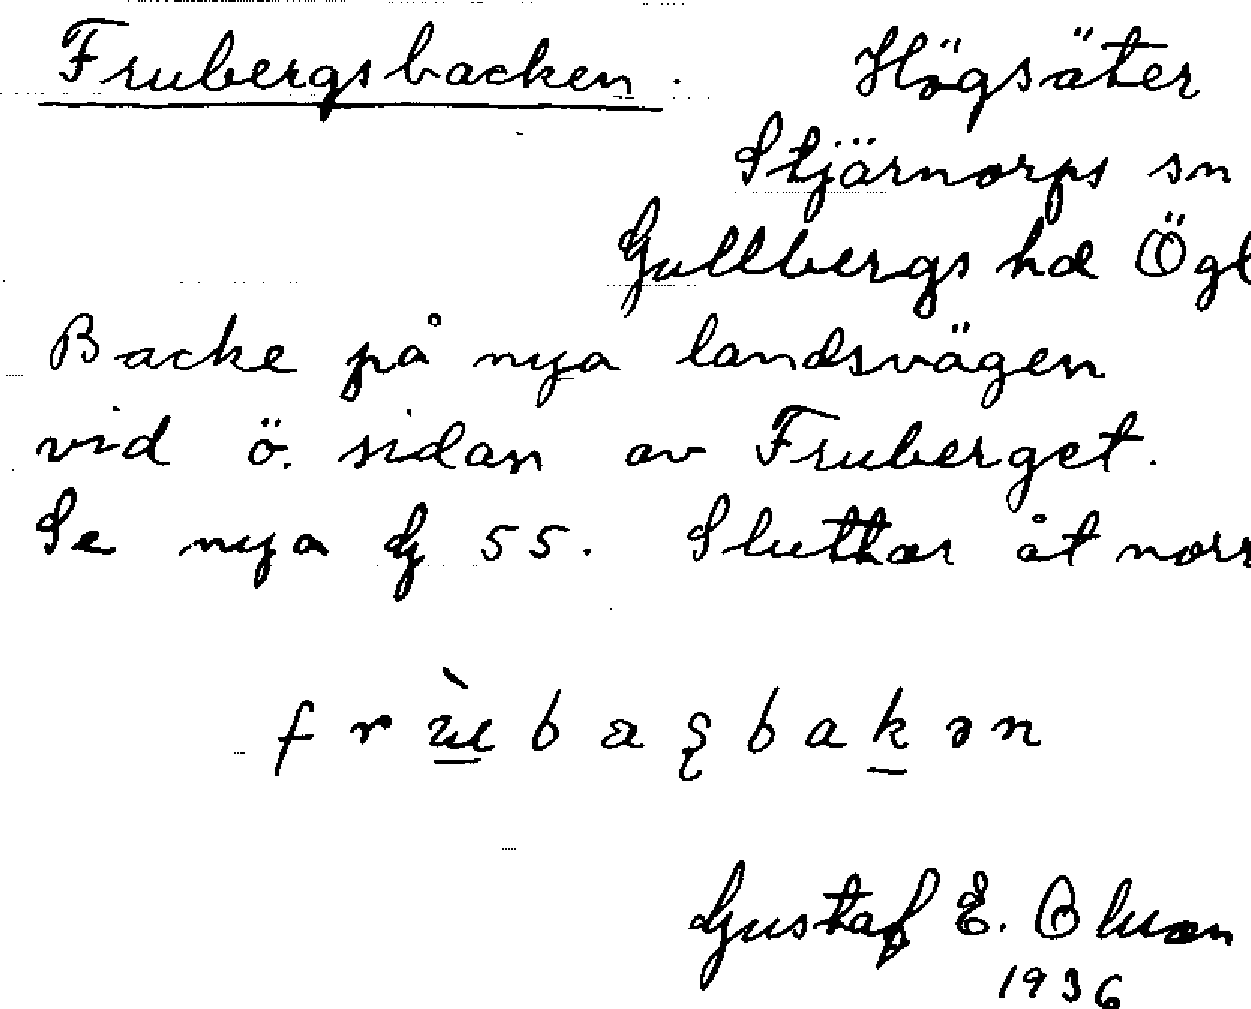 Frubergsbacken. Högsäter
Stjärnorps sn
Gullbergs hd Ögl
Backe på nya landsvägen
vid ö. sidan av Fruberget.
Se nya G 55. Sluttar åt norr
Gustaf E. Olson
1936